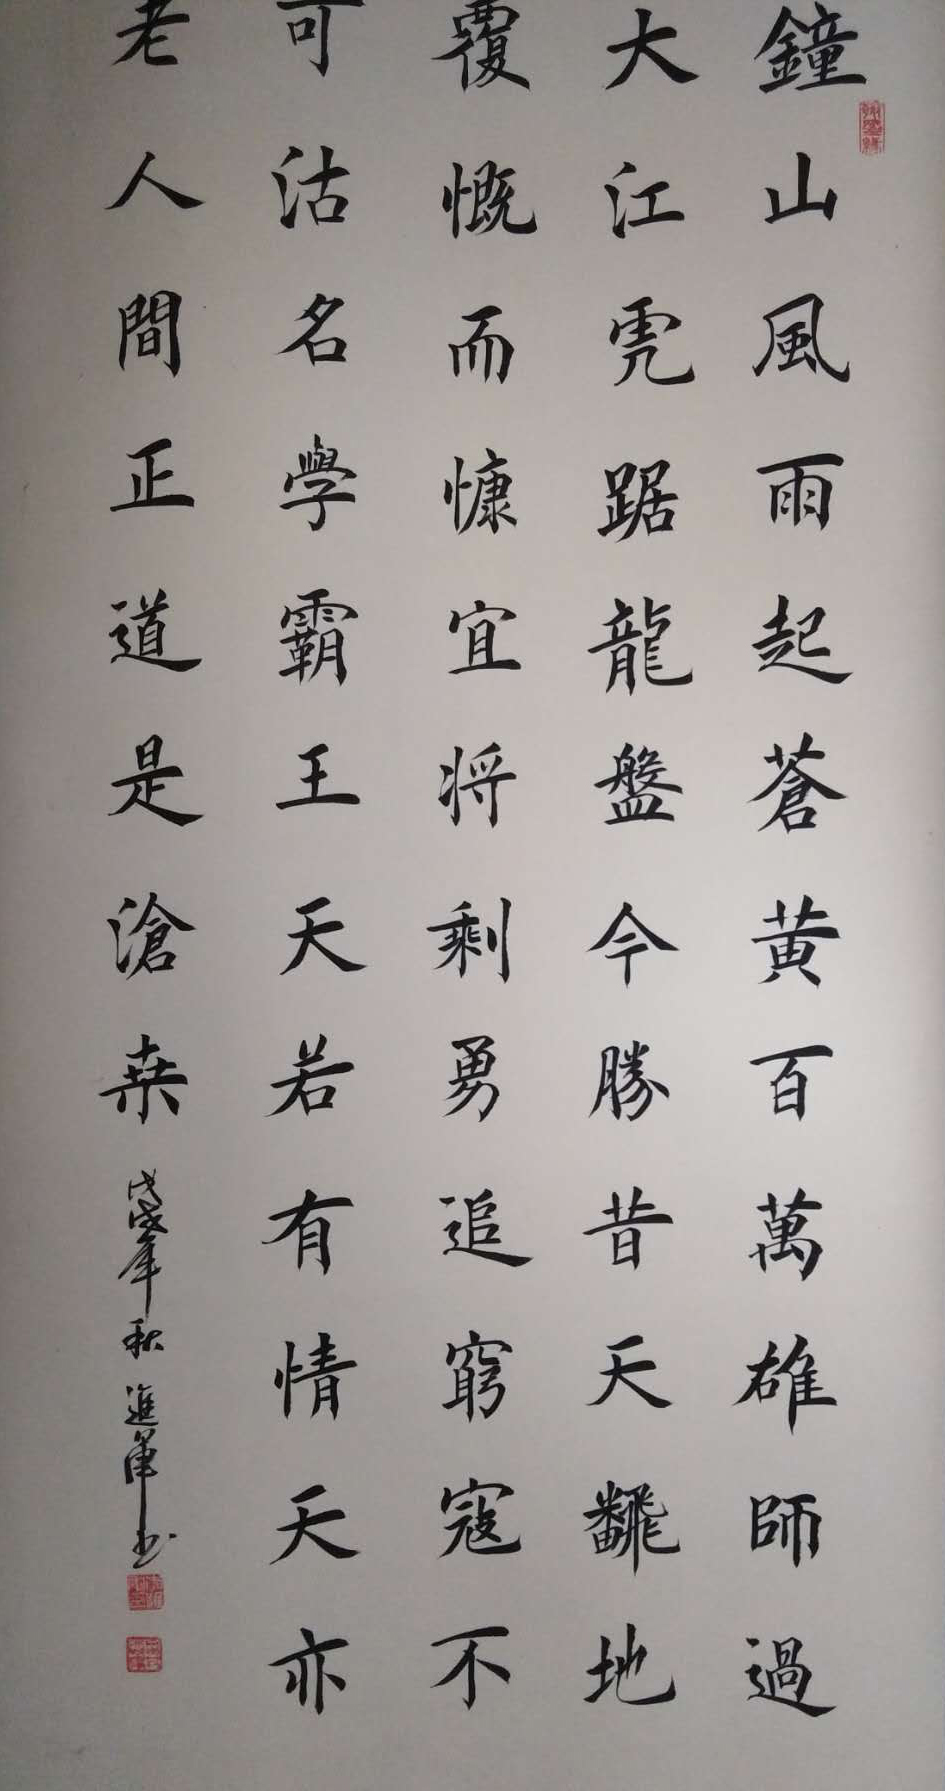 鐘山風雨起蒼黄百萬雄師過
大江虎踞龍盤今勝昔天飜地
覆慨而慷宜将剩勇追窮寇不
可沽名學霸王天若有情天亦
老人間正道是滄桒
戊戌年秋進軍书